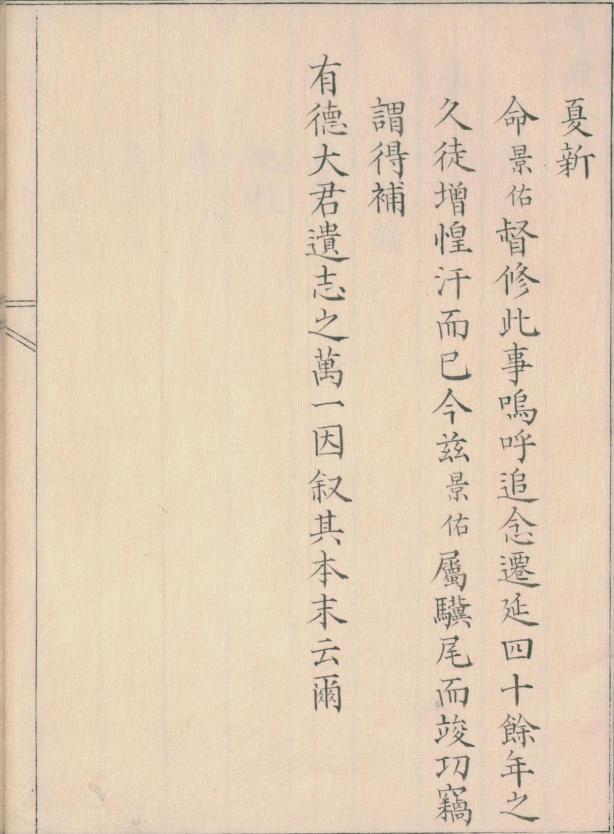 夏新
命景佑督修此事嗚呼追念遷延四十餘年之
久徒增惶汗而已今兹景佑屬驥尾而竣功竊
謂得補
有德大君遺志之萬一因叙其本末云爾